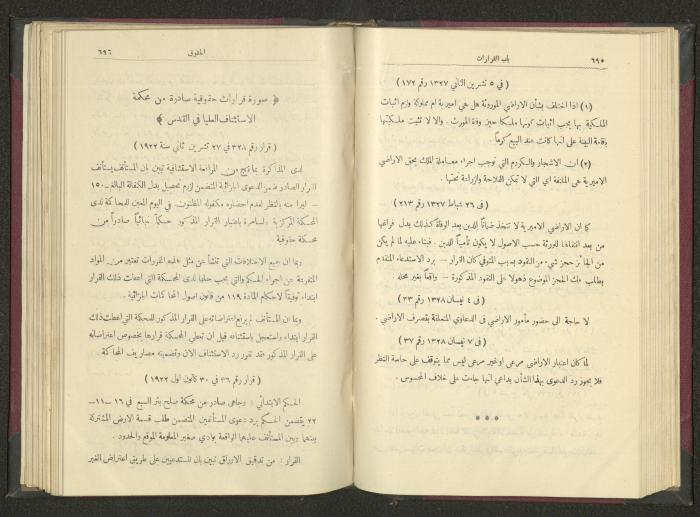 ٦٩٥
باب القرارات
( في ٥ تشرين الثاني ١٣٢٧ رقم ١٧٢ )
(١) اذا اختلف بشأن الاراضي الموروثة هل هي اميرية ام مملوكة ولزم اثبات
الملكية بها يجب اثبات كونها ملكا حين وفاة المورث . والا لا تثبت ملكيتها
باقامة البينة على انها كانت عند البيع كرماً .
(٢) ان الاشجار والكروم التي توجب اجراء معاملة الملك بحق الاراضي
الاميرية هي الملتفة اي التي لا تمكن الفلاحة والزراعة تحتها .
( في ٢٦ شباط ١٣٢٧ رقم ٢١٣ )
كما ان الاراضي الاميرية لا تتخذ ضماناً للدين بعد الوفاة كذلك بدل فراغها
من بعد انتقالها للورثة حسب الاصول لا يكون تأميناً للدين . فبناء عليه لما لم يكن
من الجائز حجز شيء من النقود بسبب المتوفى كان القرار — برد الاستدعاء المتقدم
بطلب فك الحجز الموضوع ذهولا على النقود المذكورة — واقعاً بغير محله
( في ٤ نيسان ١٣٢٨ رقم ٢٣ )
لا حاجة الى حضور مأمور الاراضي في الدعاوي المتعلقة بتصرف الاراضي .
( في ٧ نيسان ١٣٢٨ رقم ٣٧ )
لما كان اعتبار الاراضي مرعى او غير مرعى ليس مما يتوقف على حاسة النظر
فلا يجوز رد الدعوى بهذا الشأن بداعي انها جاءت على خلاف المحسوس .
* * *
الحقوق
٦٩٦
﴿ صورة قرارات حقوقية صادرة من محكمة
الاستئناف العليا في القدس ﴾
( قرار ٣٢٨ في ٢٧ تشرين ثاني سنة ١٩٢٢ )
لدى المذاكرة بما نتج من المرافعة الاستئنافية تبين بان المستأنف يستأنف
القرار الصادر ضمن الدعوى الجزائية المتضمن لزوم تحصيل بدل الكفالة البالغ ١٥٠
ليرا منه بالنظر لعدم احضاره مكفوله المظنون في اليوم المعين للمحاكمة لدى
المحكمة المركزية بالسامرة باعتبار القرار المذكور حكماً نهائياً صادراً من
محكمة حقوقية
وبما ان جميع الاختلافات التي تنشأ عن مثل هذه القرارات تعتبر من المواد
المتفرعة عن اجراء الحكم والتي يجب حلها لدى المحكمة التي اعطت ذلك القرار
ابتداء توفيقاً لاحكام المادة ١١٩ من قانون اصول المحاكمات الجزائية .
وبما ان المستأنف لم يرفع اعتراضاته على القرار المذكور للمحكمة التي اعطت ذلك
القرار ابتداء واستعجل باستئنافه قبل ان تعطي المحكمة قرارها بخصوص اعتراضاته
على القرار المذكور فقد تقرر رد الاستئناف الان وتضمينه مصاريف المحاكمة .
( قرار رقم ٣٦ في ٣٠ كانون اول ١٩٢٢ )
الحكم الابتدائي : وجاهي صادر من محكمة صلح بئر السبع في ١٦ — ١١ —
٢٢ يتضمن الحكم برد دعوى المستأنفين المتضمن طلب قسمة الارض المشتركة
بينهما وبين المستأنف عليهما الواقعة بوادي صغير المعلومة الموقع والحدود .
القرار : من تدقيق الاوراق تبين بان المستدعيين على طريق اعتراض الغير